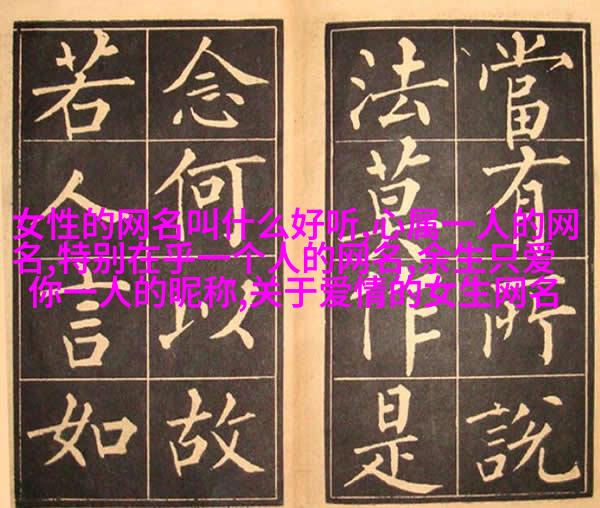 當有所說
法莫作是
念何以故
若人言如
女性的网名叫什么好听,心属一人的网
名,特别在乎一个人的网名,余生只爱
你一人的昵称,关于爱情的女生网名